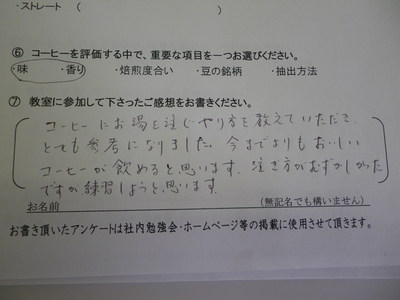 ・ストレート （　　　　　　　　　　）
⑥ コーヒーを評価する中で、重要な項目を一つお選びください。
・味　・香り　・焙煎度合い　・豆の銘柄　・抽出方法
⑦ 教室に参加して下さったご感想をお書きください。
コーヒーにお湯を注じやり方を教えていただき、
とても参考になりました。今までよりもおいしい
コーヒーが飲めると思います。注ぎ方がむずかしかった
ですが練習しようと思います。
お名前　　　　　　　　　　（無記名でも構いません）
お書き頂いたアンケートは社内勉強会・ホームページ等の掲載に使用させて頂きます。